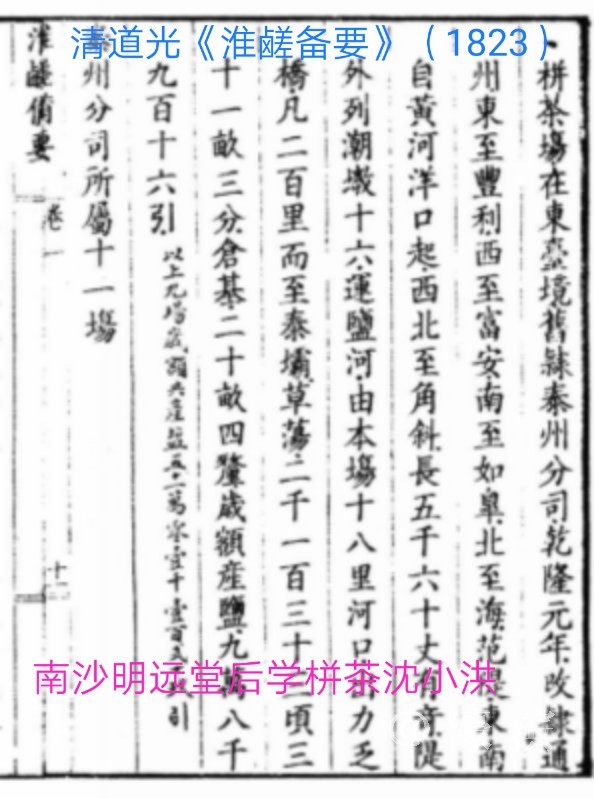 清道光《淮鹾备要》（1823）
栟茶場在東臺境舊隸泰州分司乾隆元年改隸通
州東至豐利西至富安南至如臯北至海范隄東南
自黃河洋口起西北至角斜長五千六十丈有奇隄
外列潮墩十六運鹽河由本場十八里河口出力乏
橋凡二百里而至泰壩草蕩二千一百三十二頃三
十一畝三分倉基二十畝四釐歲額產鹽九萬八千
九百十六引以上九場歲額共產鹽五十一萬
州分司所屬十一場
淮鹺備要 卷一
南沙明远堂后学栟茶沈小洪